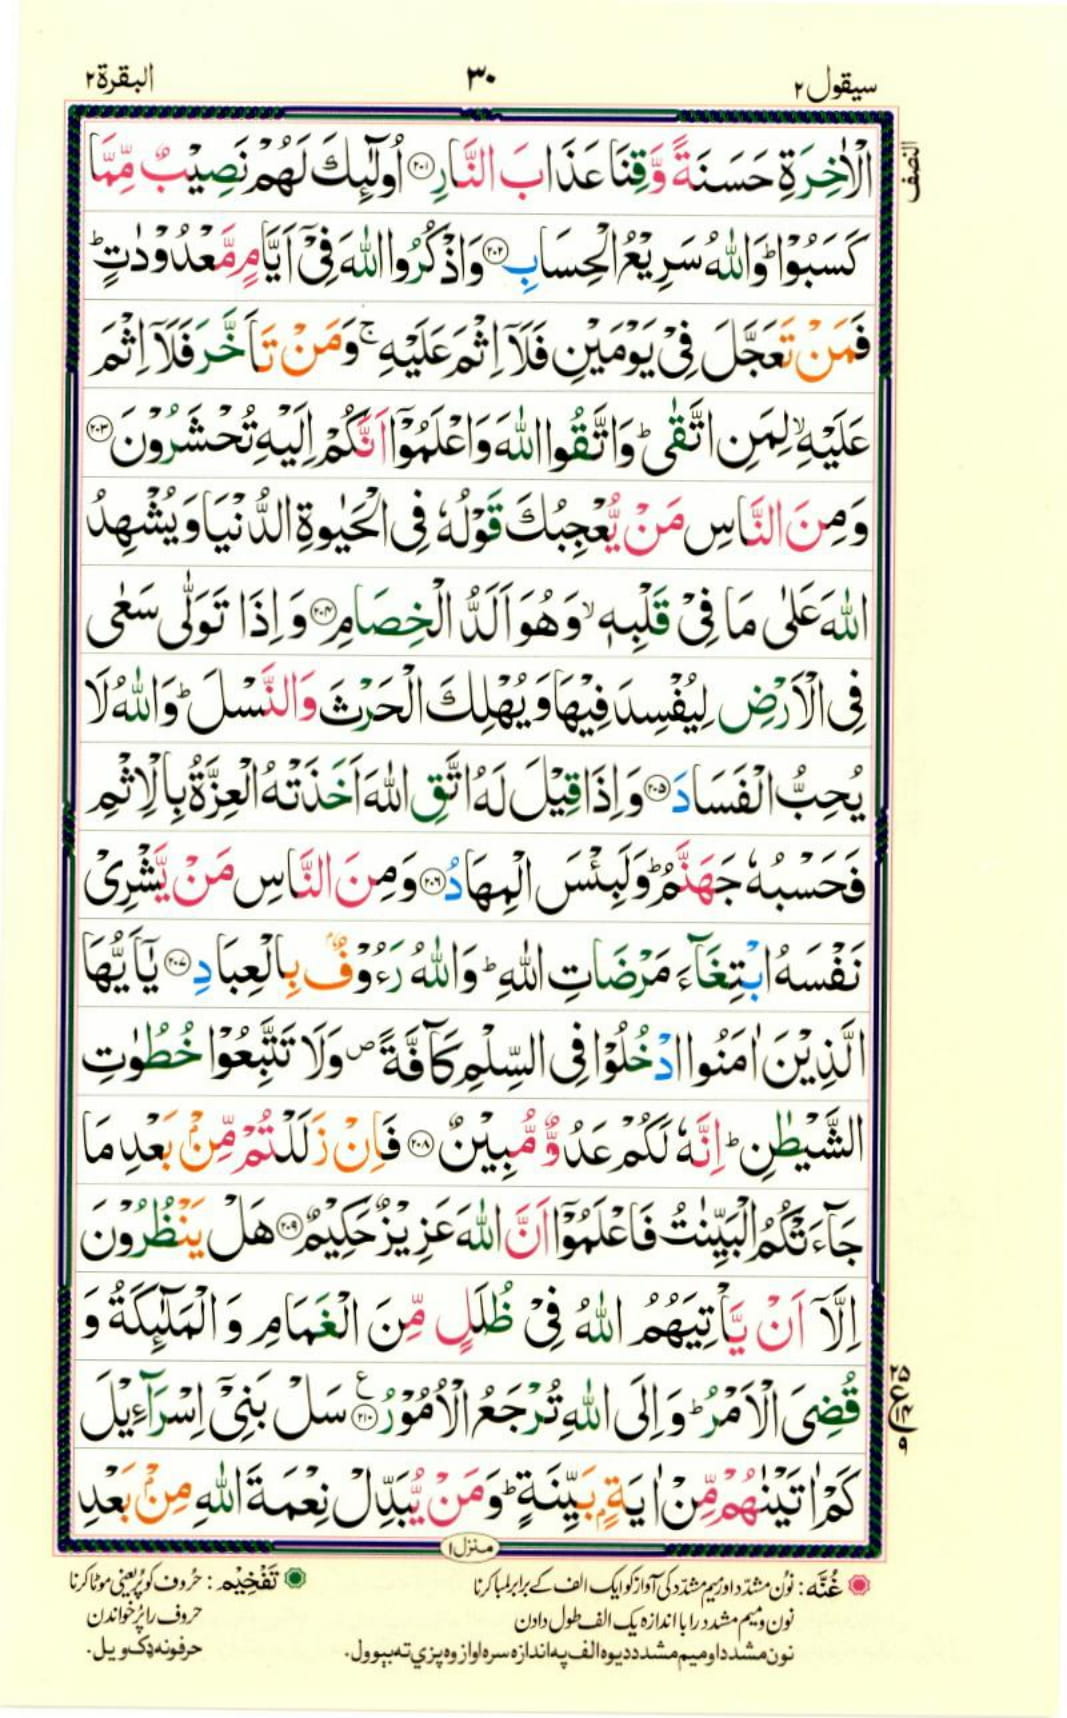 سيقول ٢ ٣٠ البقرة ٢
النصف
الْاٰخِرَةِ حَسَنَةً وَّقِنَا عَذَابَ النَّارِ ﴿۲۰۱﴾ اُولٰٓئِكَ لَهُمْ نَصِيْبٌ مِّمَّا
كَسَبُوْا ؕ وَاللّٰهُ سَرِيْعُ الْحِسَابِ ﴿۲۰۲﴾ وَاذْكُرُوا اللّٰهَ فِىْٓ اَيَّامٍ مَّعْدُوْدٰتٍ ؕ
فَمَنْ تَعَجَّلَ فِىْ يَوْمَيْنِ فَلَآ اِثْمَ عَلَيْهِ ۚ وَمَنْ تَاَخَّرَ فَلَآ اِثْمَ
عَلَيْهِ ۙ لِمَنِ اتَّقٰى ؕ وَاتَّقُوا اللّٰهَ وَاعْلَمُوْٓا اَنَّكُمْ اِلَيْهِ تُحْشَرُوْنَ ﴿۲۰۳﴾
وَمِنَ النَّاسِ مَنْ يُّعْجِبُكَ قَوْلُهٗ فِى الْحَيٰوةِ الدُّنْيَا وَيُشْهِدُ
اللّٰهَ عَلٰى مَا فِىْ قَلْبِهٖ ۙ وَهُوَ اَلَدُّ الْخِصَامِ ﴿۲۰۴﴾ وَاِذَا تَوَلّٰى سَعٰى
فِى الْاَرْضِ لِيُفْسِدَ فِيْهَا وَيُهْلِكَ الْحَرْثَ وَالنَّسْلَ ؕ وَاللّٰهُ لَا
يُحِبُّ الْفَسَادَ ﴿۲۰۵﴾ وَاِذَا قِيْلَ لَهُ اتَّقِ اللّٰهَ اَخَذَتْهُ الْعِزَّةُ بِالْاِثْمِ
فَحَسْبُهٗ جَهَنَّمُ ؕ وَلَبِئْسَ الْمِهَادُ ﴿۲۰۶﴾ وَمِنَ النَّاسِ مَنْ يَّشْرِىْ
نَفْسَهُ ابْتِغَآءَ مَرْضَاتِ اللّٰهِ ؕ وَاللّٰهُ رَءُوْفٌۢ بِالْعِبَادِ ﴿۲۰۷﴾ يٰٓاَيُّهَا
الَّذِيْنَ اٰمَنُوا ادْخُلُوْا فِى السِّلْمِ كَآفَّةً ۖ وَلَا تَتَّبِعُوْا خُطُوٰتِ
الشَّيْطٰنِ ؕ اِنَّهٗ لَكُمْ عَدُوٌّ مُّبِيْنٌ ﴿۲۰۸﴾ فَاِنْ زَلَلْتُمْ مِّنْۢ بَعْدِ مَا
جَآءَتْكُمُ الْبَيِّنٰتُ فَاعْلَمُوْٓا اَنَّ اللّٰهَ عَزِيْزٌ حَكِيْمٌ ﴿۲۰۹﴾ هَلْ يَنْظُرُوْنَ
اِلَّآ اَنْ يَّاْتِيَهُمُ اللّٰهُ فِىْ ظُلَلٍ مِّنَ الْغَمَامِ وَالْمَلٰٓئِكَةُ وَ
قُضِىَ الْاَمْرُ ؕ وَاِلَى اللّٰهِ تُرْجَعُ الْاُمُوْرُ ﴿۲۱۰﴾ ع سَلْ بَنِىْٓ اِسْرَآءِيْلَ
۲۵ ع ۱۴ ۹
كَمْ اٰتَيْنٰهُمْ مِّنْ اٰيَةٍۢ بَيِّنَةٍ ؕ وَمَنْ يُّبَدِّلْ نِعْمَةَ اللّٰهِ مِنْۢ بَعْدِ
منزل ۱
غُنّه: نون مشدّد اور میم مشدّد کی آواز کو ایک الف کے برابر لمبا کرنا
نون و میم مشدد را با اندازه یک الف طول دادن
نون مشدد او میم مشدد دیوه الف په اندازه سره اواز وه پزې ته بېوول.
تَفْخِیْم: حُروف کو پُر یعنی موٹا کرنا
حروف را پُر خواندن
حرفونه ډک ویل.